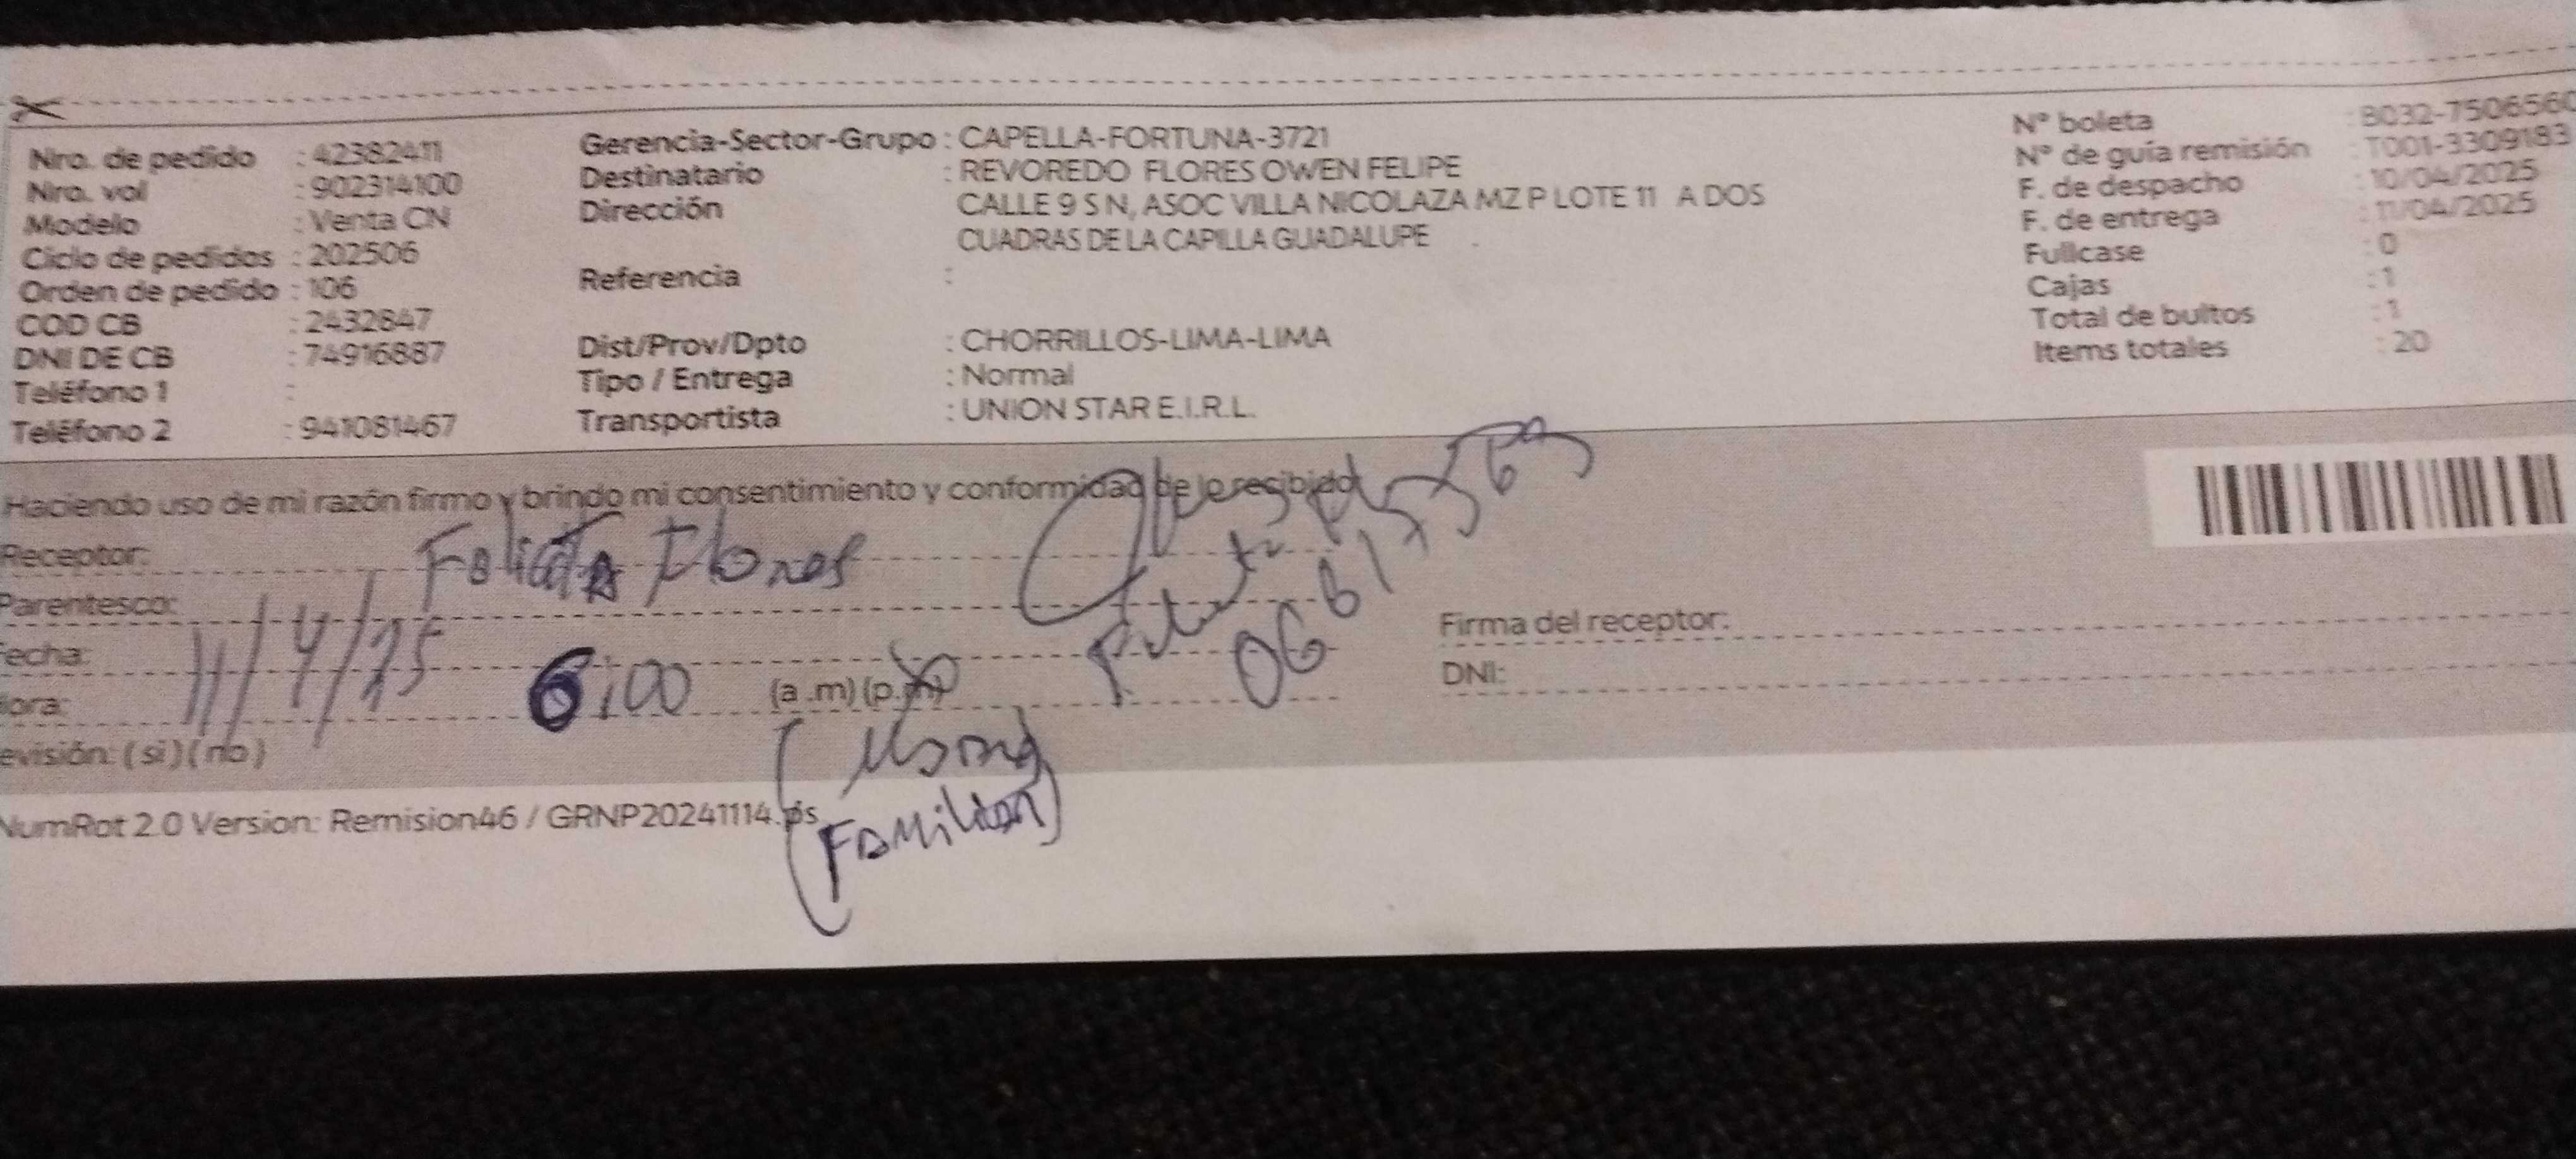 Nro. de pedido : 42382411
Nro. vol : 902314100
Modelo : Venta CN
Ciclo de pedidos : 202506
Orden de pedido : 106
COD CB : 2432847
DNI DE CB : 74916887
Teléfono 1 :
Teléfono 2 : 941081467
Gerencia-Sector-Grupo : CAPELLA-FORTUNA-3721
Destinatario : REVOREDO FLORES OWEN FELIPE
Dirección CALLE 9 S N, ASOC VILLA NICOLAZA MZ P LOTE 11 A DOS
CUADRAS DE LA CAPILLA GUADALUPE
Referencia :
Dist/Prov/Dpto : CHORRILLOS-LIMA-LIMA
Tipo / Entrega : Normal
Transportista : UNION STAR E.I.R.L.
Nº boleta : B032-7506560
Nº de guía remisión : T001-3309183
F. de despacho : 10/04/2025
F. de entrega : 11/04/2025
Fullcase : 0
Cajas : 1
Total de bultos : 1
Items totales : 20
Haciendo uso de mi razón firmo y brindo mi consentimiento y conformidad de lo recibido
Receptor: Flores
Parentesco:
echa: 11/4/25
ora: 6:00 (a.m) (p.m)
evisión: (si) (no)
Firma del receptor:
DNI:
(
Familiar)
NumRot 2.0 Version: Remision46 / GRNP20241114.ps